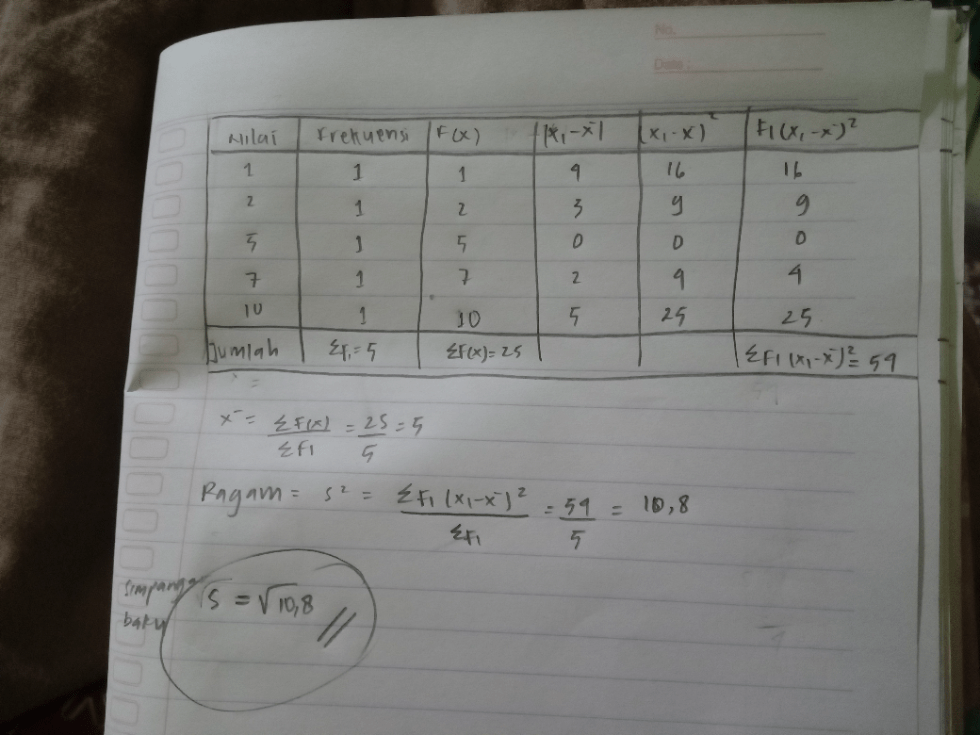 No.
Date :
Nilai Frekuensi F(x) |x₁-x̄| (x₁-x̄)² F₁(x₁-x̄)²
1 1 1 4 16 16
2 1 2 3 9 9
5 1 5 0 0 0
7 1 7 2 4 4
10 1 10 5 25 25
Jumlah ΣF₁=5 ΣF(x)=25 ΣF₁(x₁-x̄)²= 54
x̄ = ΣF(x)/ΣF₁ = 25/5 = 5
Ragam = s² = ΣF₁(x₁-x̄)²/ΣF₁ = 54/5 = 10,8
simpangan baku
s = √10,8 //